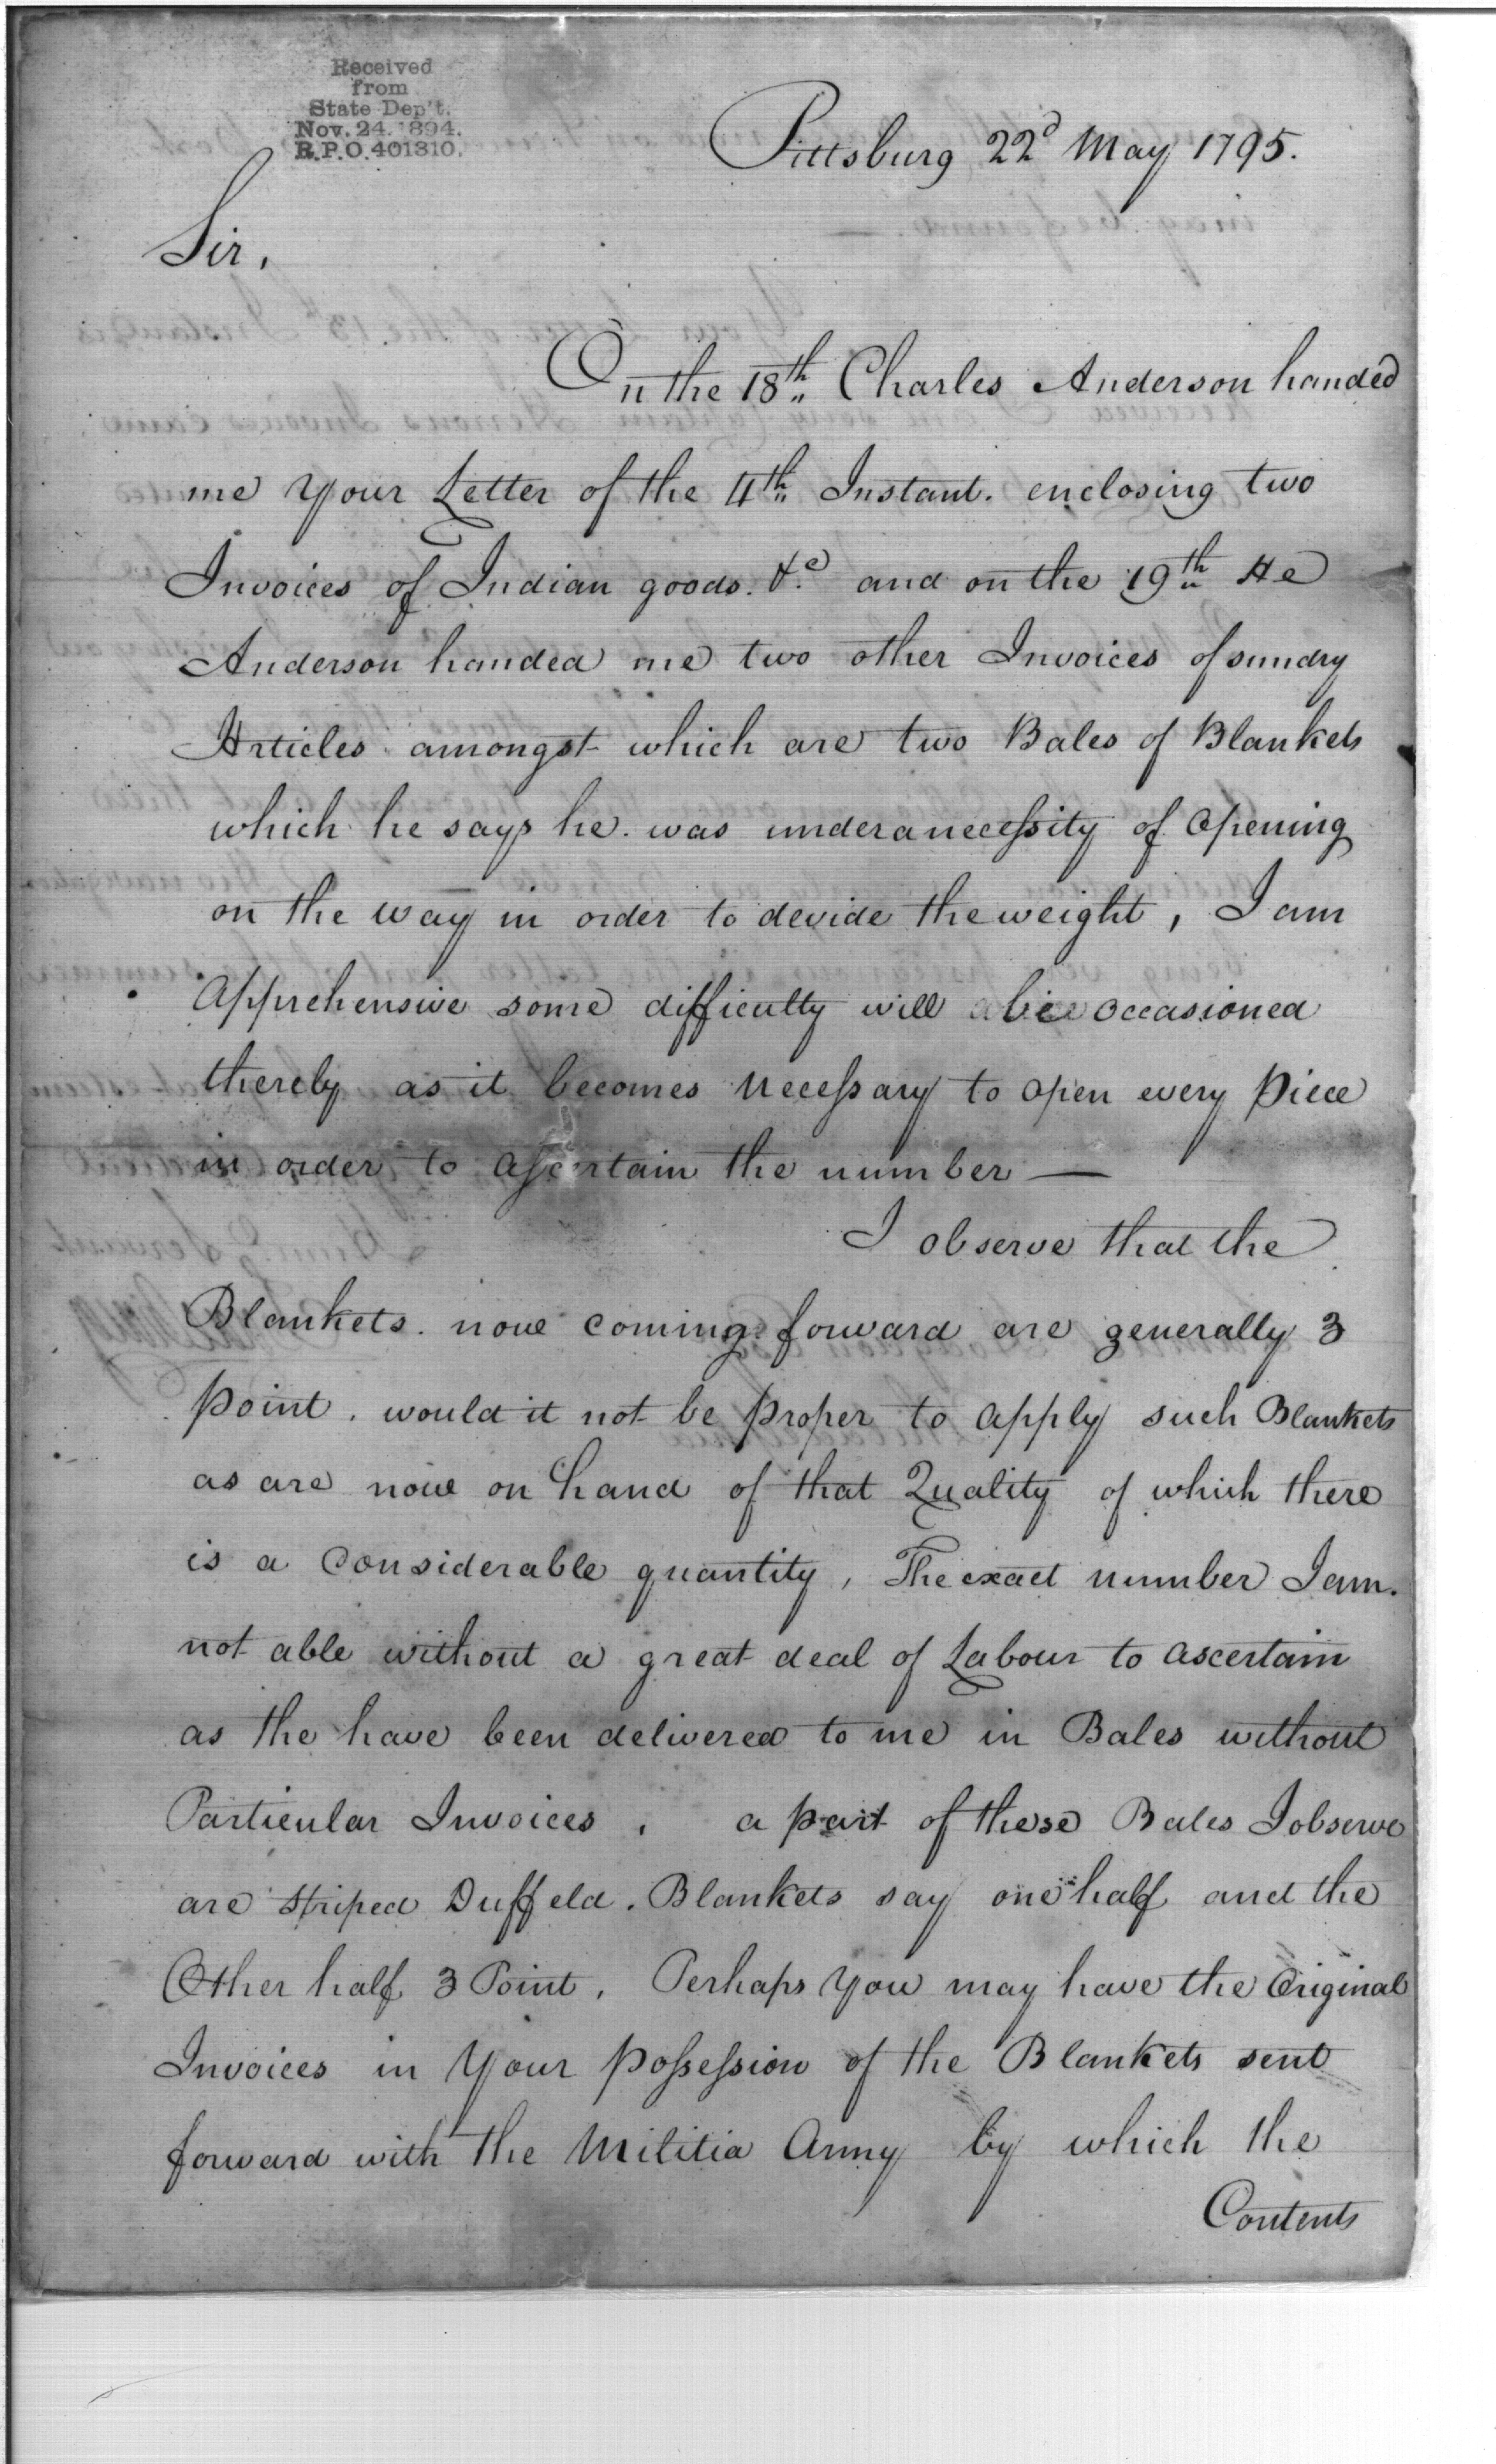 Received
from
State Dep't.
Nov. 24. 1894.
R.P.O. 401310.
Pittsburg 22d May 1795.
Sir,
On the 18th Charles Anderson handed
me Your Letter of the 4th Instant. enclosing two
Invoices of Indian goods. &c and on the 19th He
Anderson handed me two other Invoices of sundry
Articles amongst which are two Bales of Blankets
which he says he was under a necessity of opening
on the way in order to devide the weight, I am
Apprehensive some difficulty will be occasioned
thereby as it becomes necessary to open every piece
in order to ascertain the number —
I observe that the
Blankets. now coming forward are generally 3
point. would it not be proper to apply such Blankets
as are now on hand of that Quality of which there
is a considerable quantity, The exact number I am.
not able without a great deal of Labour to ascertain
as the have been delivered to me in Bales without
Particular Invoices, a part of these Bales I observe
are striped Duffeld. Blankets say one half and the
Other half 3 Point, Perhaps You may have the Original
Invoices in Your possession of the Blankets sent
forward with the Militia Army by which the
Contents